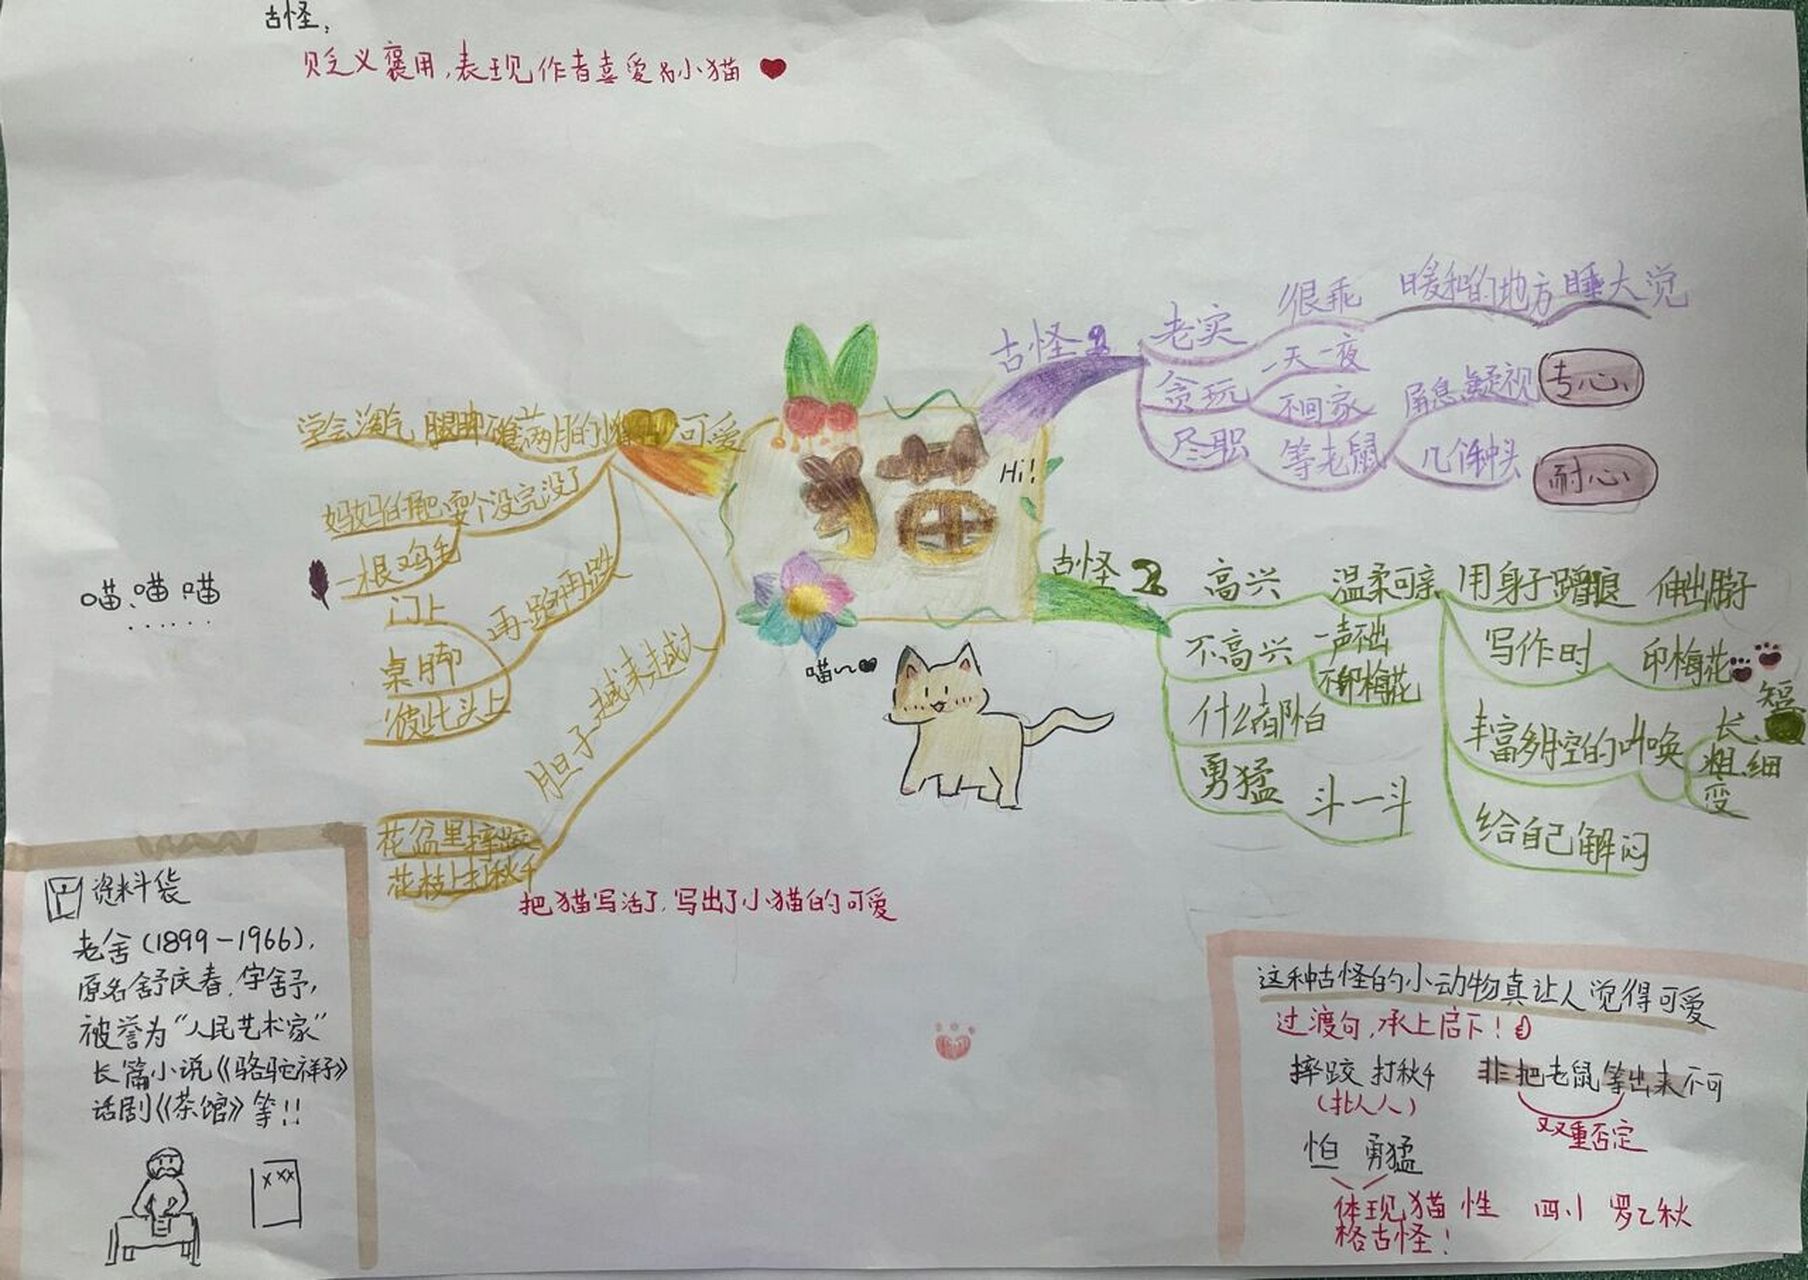 古怪,
贬义褒用,表现作者喜爱的小猫
古怪
老实
很乖
暖和的地方睡大觉
贪玩
一天一夜
不回家
尽职
等老鼠
屏息凝视
专心
几个钟头
耐心
学会淘气
腿脚不稳
满月的小猫
可爱
妈妈的尾巴
耍个没完没了
一根鸡毛
门上
桌脚
彼此头上
再跑再跌
胆子越来越大
花盆里摔跤
花枝上打秋千
把猫写活了,写出了小猫的可爱
猫
Hi!
喵、喵、喵
......
喵~
古怪 2
高兴
温柔可亲
用身子蹭腿
伸出脖子
写作时
印梅花
丰富多腔的叫唤
长、短
粗、细
变
给自己解闷
不高兴
一声不出
不印梅花
什么都怕
勇猛
斗一斗
资料袋
老舍(1899-1966),
原名舒庆春,字舍予,
被誉为“人民艺术家”
长篇小说《骆驼祥子》
话剧《茶馆》等!!
x xx
这种古怪的小动物真让人觉得可爱
过渡句,承上启下!
摔跤 打秋千
(拟人)
非把老鼠等出来不可
双重否定
怕 勇猛
体现猫性
格古怪!
四.1 罗乙秋